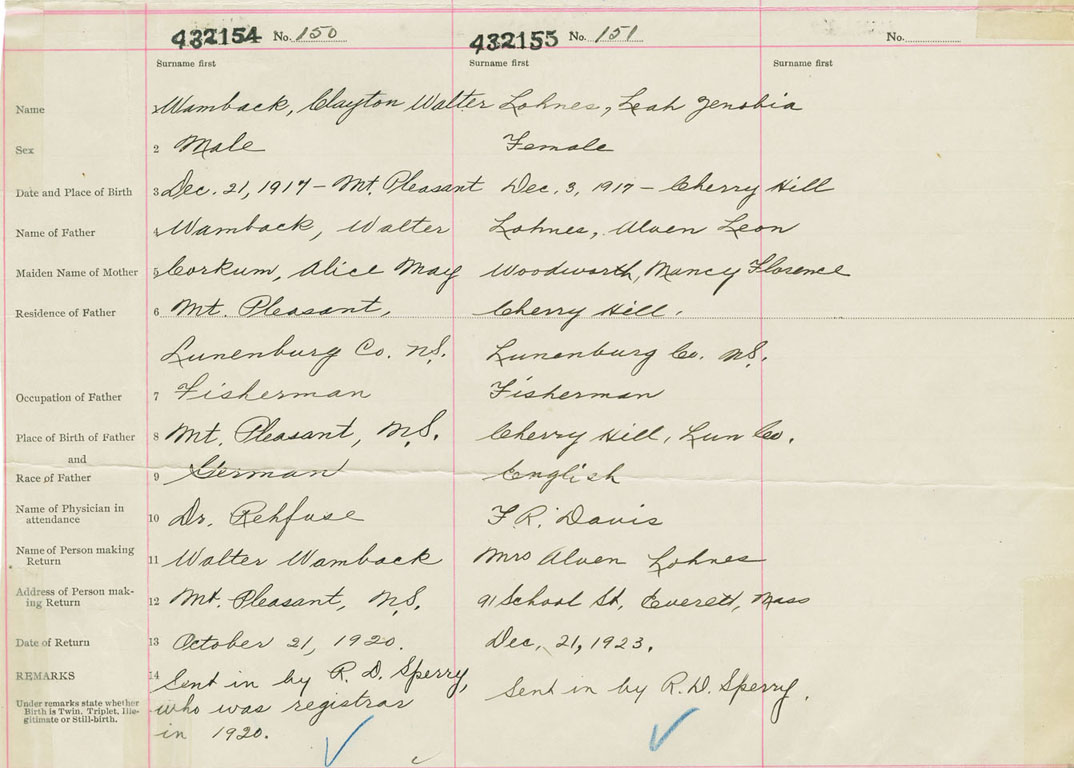 432154 No. 150 432155 No. 151 No.
Surname first Surname first Surname first
Name 1 Wamback, Clayton Walter Lohnes, Leah Zenobia
Sex 2 Male Female
Date and Place of Birth 3 Dec. 21, 1917 - Mt. Pleasant Dec. 3, 1917 - Cherry Hill
Name of Father 4 Wamback, Walter Lohnes, Alven Leon
Maiden Name of Mother 5 Corkum, Alice May Woodworth, Nancy Florence
Residence of Father 6 Mt. Pleasant, Cherry Hill.
Lunenburg Co. N.S. Lunenburg Co. N.S.
Occupation of Father 7 Fisherman Fisherman
Place of Birth of Father 8 Mt. Pleasant, N.S. Cherry Hill, Lun Co.
and
Race of Father 9 German English
Name of Physician in
attendance 10 Dr. Rehfuse F R. Davis
Name of Person making
Return 11 Walter Wamback Mrs Alven Lohnes
Address of Person mak-
ing Return 12 Mt. Pleasant, N.S. 91 School St, Everett, Mass
Date of Return 13 October 21, 1920. Dec. 21, 1923.
REMARKS 14 Sent in by R. D. Sperry, Sent in by R. D. Sperry.
Under remarks state whether who was registrar
Birth is Twin, Triplet, Ille-
gitimate or Still-birth. in 1920.